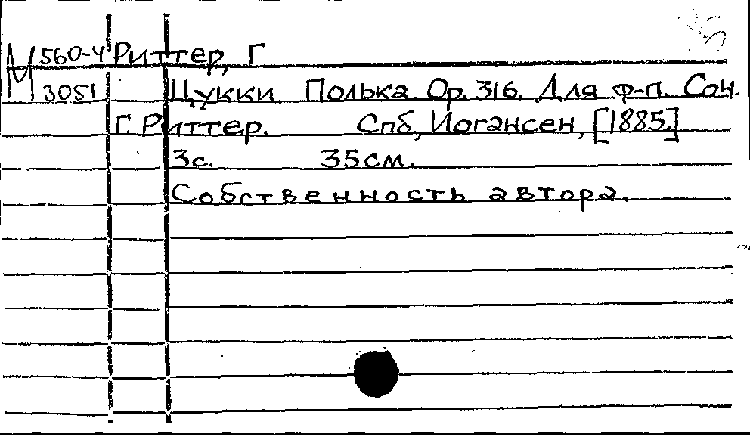 М 560-4 Риттер, Г
3051 Цукки Полька Ор. 316. Для ф-п. Соч.
Г. Риттер. Спб, Иогансен, [1885.]
3с. 35см.
Собственность автора.